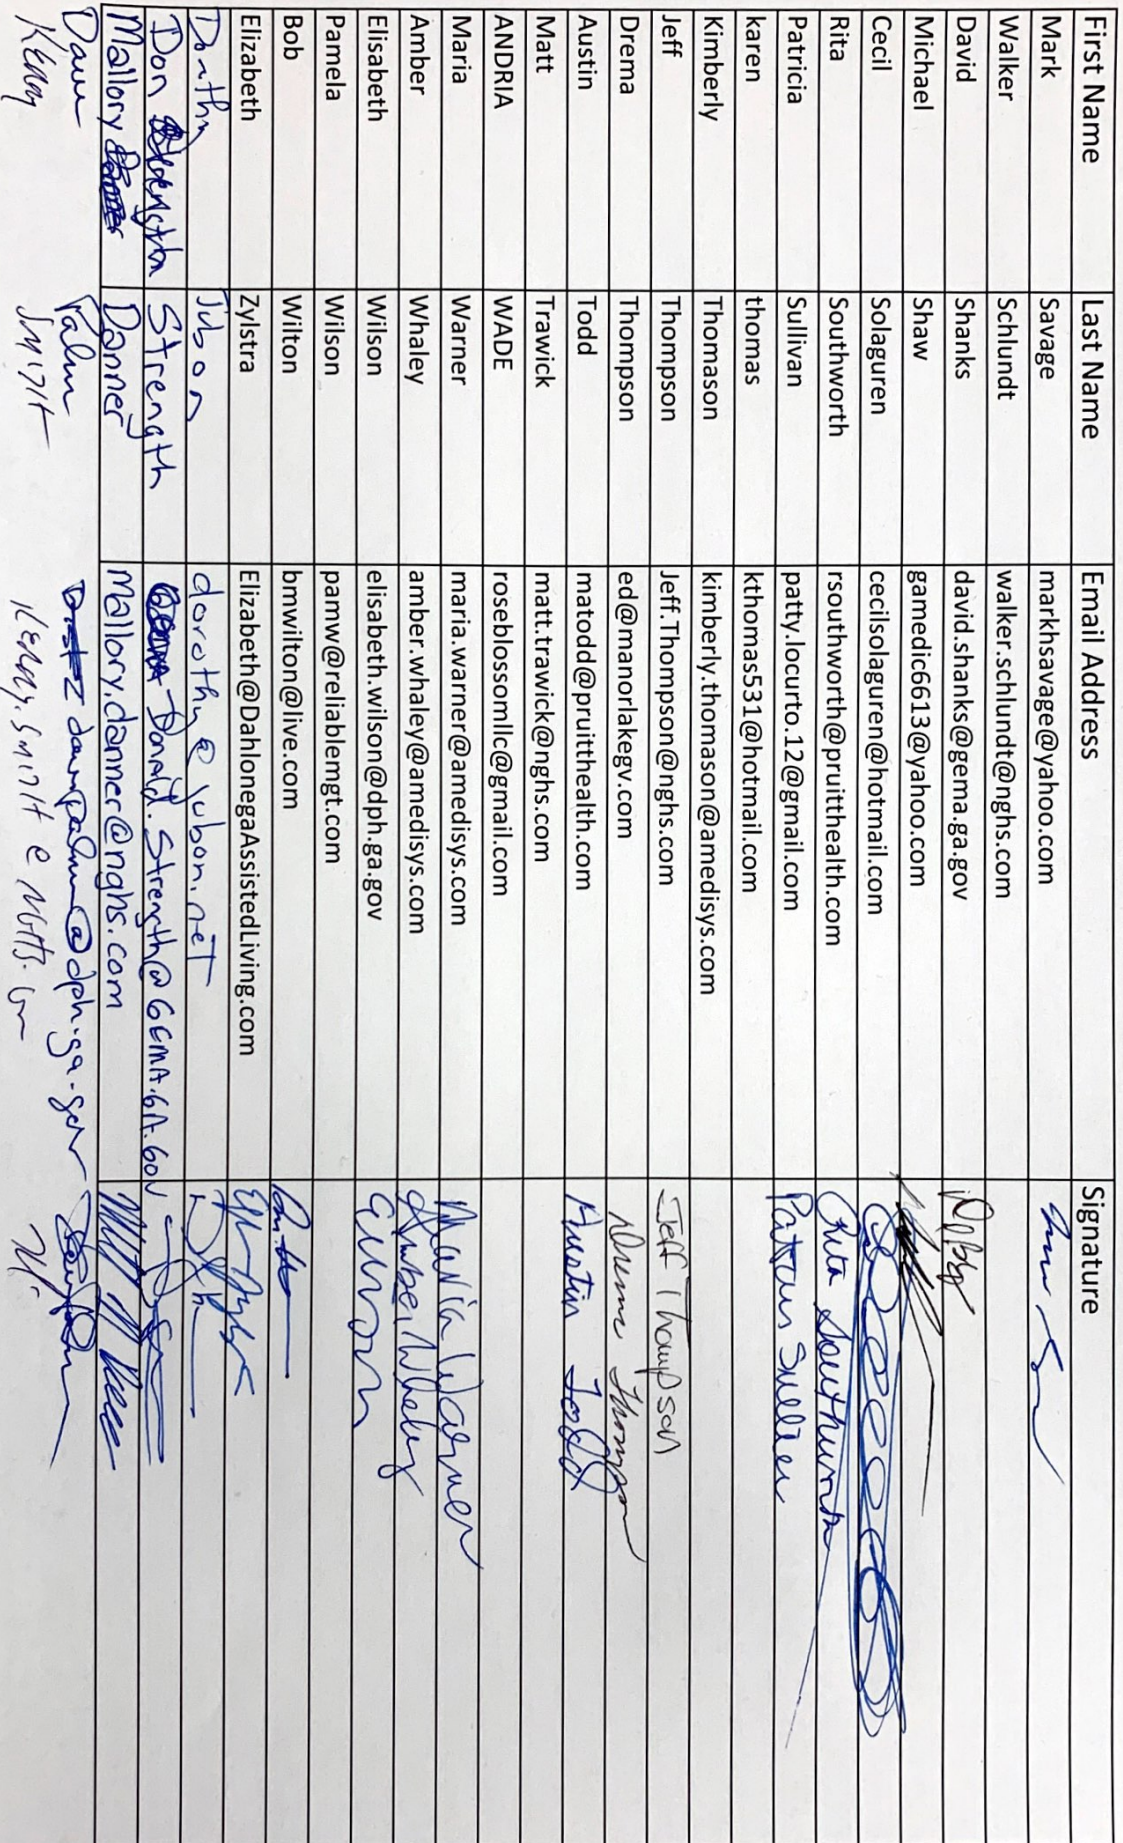 First Name Last Name Email Address Signature
Mark Savage markhsavage@yahoo.com
Walker Schlundt walker.schlundt@nghs.com
David Shanks david.shanks@gema.ga.gov
Michael Shaw gamedic6613@yahoo.com
Cecil Solaguren cecilsolaguren@hotmail.com
Rita Southworth rsouthworth@pruitthealth.com Rita Southworth
Patricia Sullivan patty.locurto.12@gmail.com
karen thomas kthomas531@hotmail.com
Kimberly Thomason kimberly.thomason@amedisys.com
Jeff Thompson Jeff.Thompson@nghs.com Jeff Thompson
Drema Thompson ed@manorlakegv.com Drema Thompson
Austin Todd matodd@pruitthealth.com Austin Todd
Matt Trawick matt.trawick@nghs.com
ANDRIA WADE roseblossomllc@gmail.com
Maria Warner maria.warner@amedisys.com Maria Warner
Amber Whaley amber.whaley@amedisys.com Amber Whaley
Elisabeth Wilson elisabeth.wilson@dph.ga.gov
Pamela Wilson pamw@reliablemgt.com
Bob Wilton bmwilton@live.com
Elizabeth Zylstra Elizabeth@DahlonegaAssistedLiving.com
Jubon dorothy@jubon.net
Don Strength Donald.Strength@GEMA.GA.GOV
Mallory Danner Mallory.danner@nghs.com
Dawn Palm dawn.palm@dph.ga.gov
Kenny Smith Kenny.Smith@NGHS.com